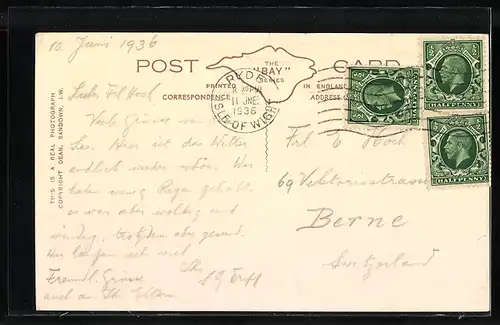 10. Juni 1936
POST CARD
THE
"BAY"
SERIES
PRINTED IN ENGLAND
CORRESPONDENCE ADDRESS
RYDE
11 JNE
1936
ISLE OF WIGHT
THIS IS A REAL PHOTOGRAPH
COPYRIGHT DEAN, SANDOWN, I.W.
HALFPENNY
HALFPENNY
HALFPENNY
Viele Grüsse
See. Hier ist das Wetter
endlich wieder schön. Wir
haben wenig Regen gehabt.
es war aber wolkig und
windig, trotzdem aber gesund.
Wir laufen sehr viel
Freundl. Grüsse
auch an Ihre Eltern
Frl E Hoch
69 Viktoriastrasse
Berne
Switzerland